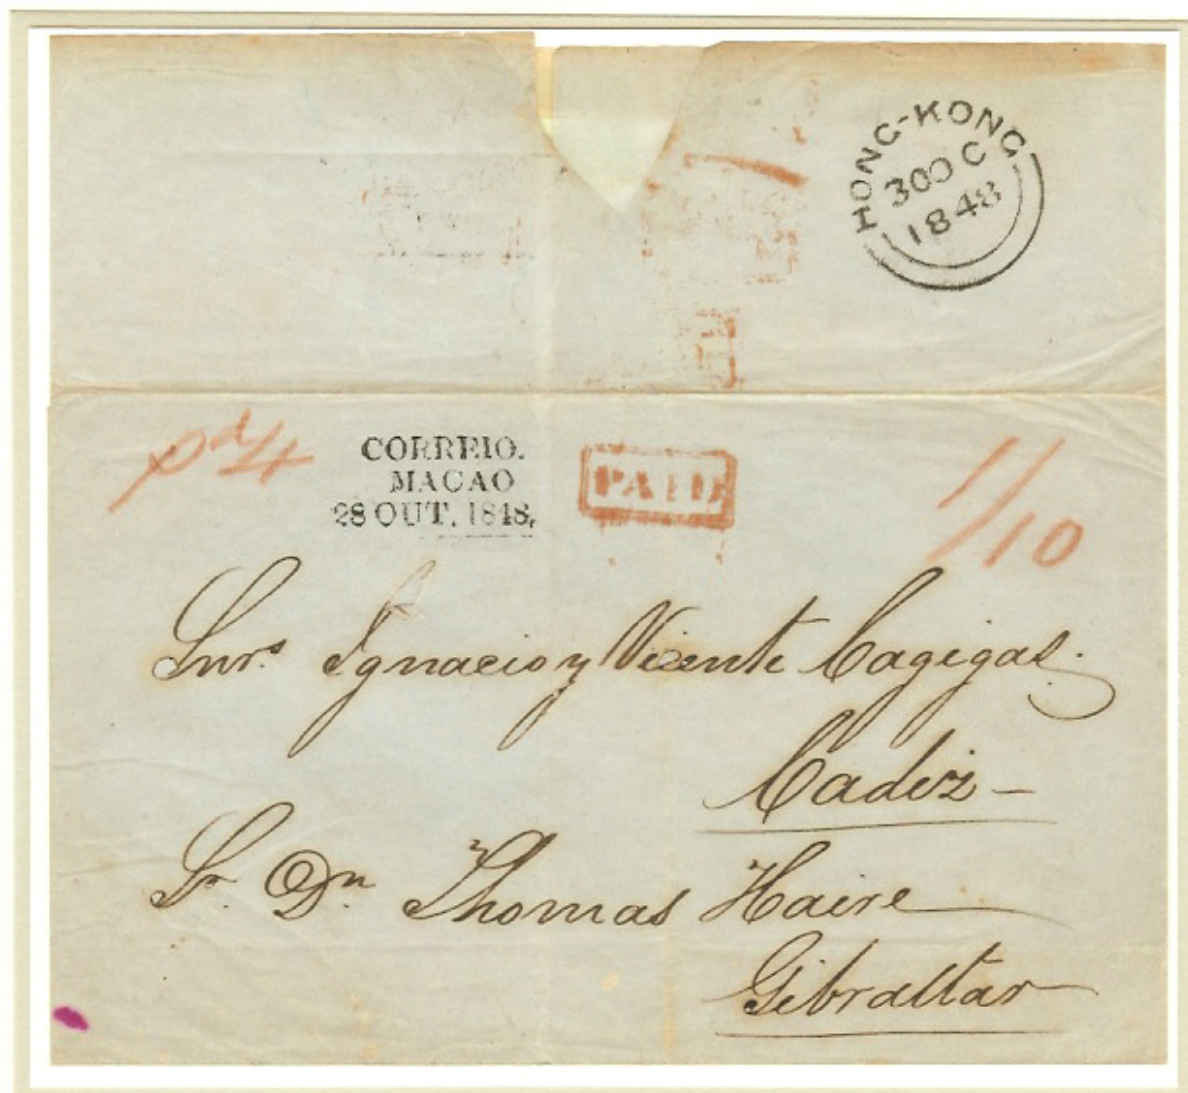 HONG-KONG
30 OC
1848
pd 4
CORREIO.
MACAO
28 OUT. 1848,
PAID
1/10
Snrs. Ignacio y Vicente Cagigas.
Cadiz -
Sr. Dn. Thomas Haire
Gibraltar